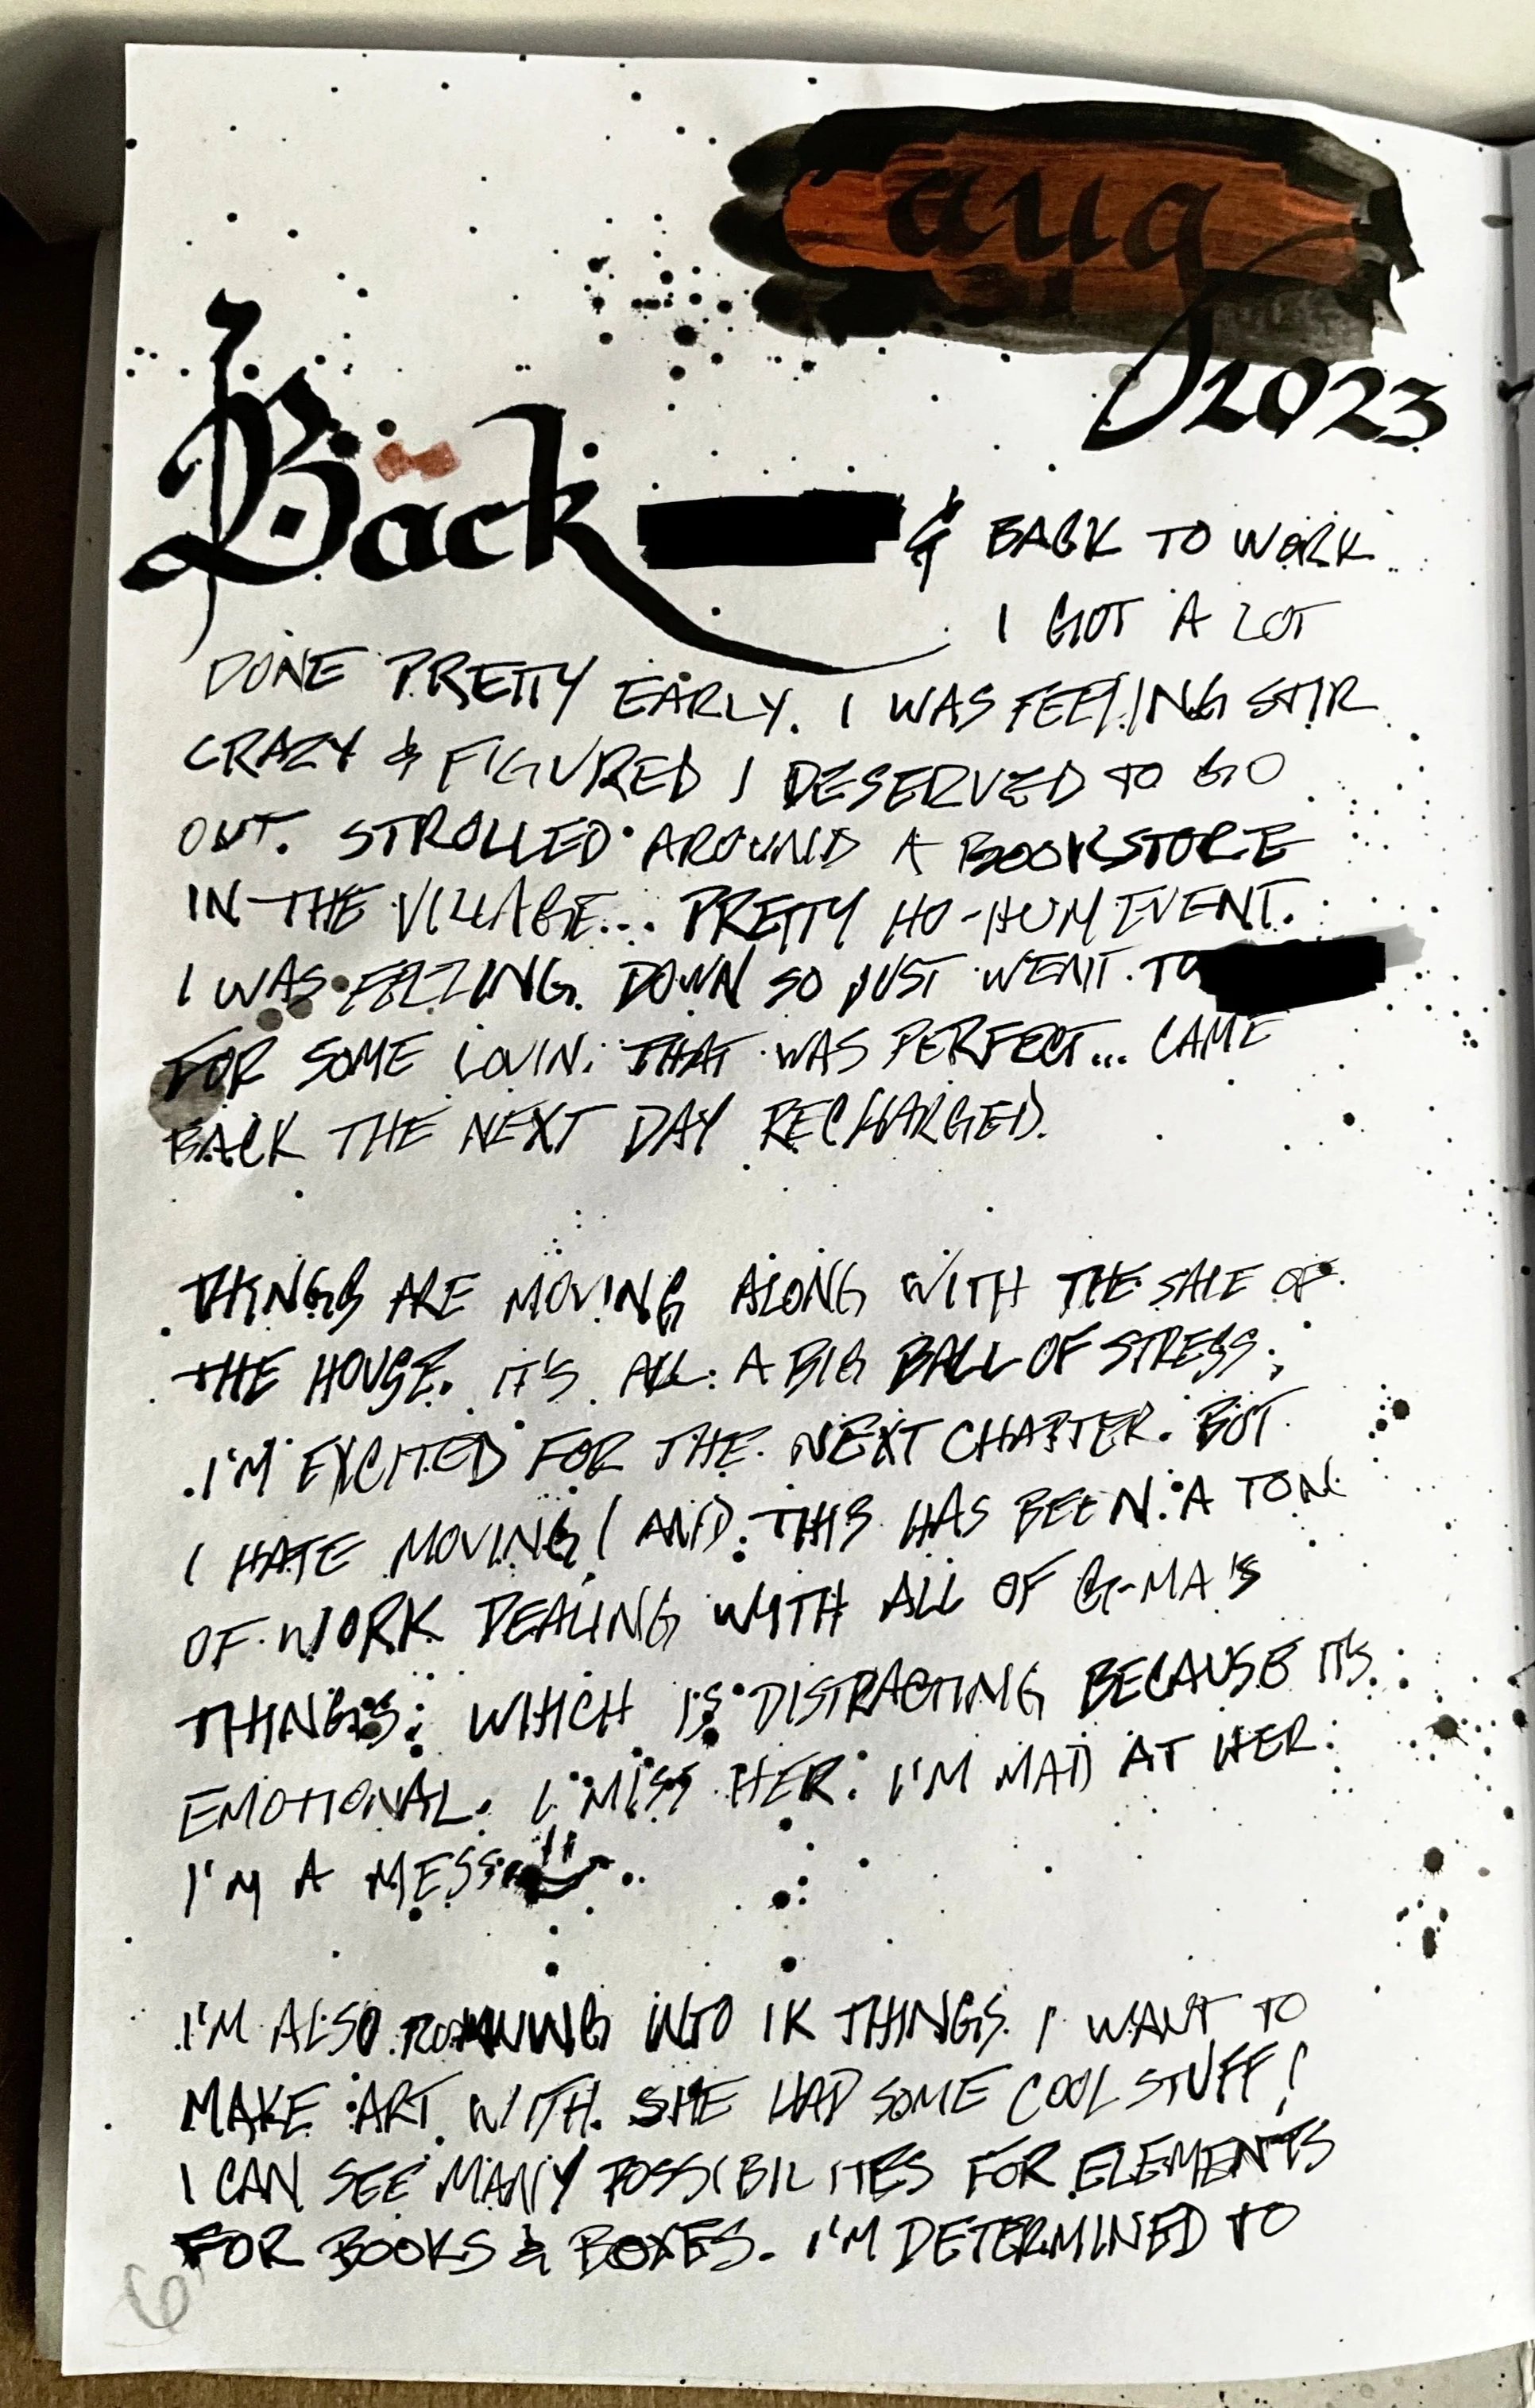 aug
2023
Back & BACK TO WORK.
I GOT A LOT
DONE PRETTY EARLY. I WAS FEELING STIR
CRAZY & FIGURED I DESERVED TO GO
OUT. STROLLED AROUND A BOOKSTORE
IN THE VILLAGE... PRETTY HO-HUM EVENT.
I WAS FEELING DOWN SO JUST WENT TO
FOR SOME LOVIN. THAT WAS PERFECT... CAME
BACK THE NEXT DAY RECHARGED.
THINGS ARE MOVING ALONG WITH THE SALE OF
THE HOUSE. IT'S ALL A BIG BALL OF STRESS.
I'M EXCITED FOR THE NEXT CHAPTER. BUT
I HATE MOVING! AND THIS HAS BEEN A TON
OF WORK DEALING WITH ALL OF G-MA'S
THINGS. WHICH IS DISTRACTING BECAUSE IT'S
EMOTIONAL. I MISS HER. I'M MAD AT HER.
I'M A MESS
I'M ALSO RUNNING INTO 1K THINGS I WANT TO
MAKE ART WITH. SHE HAD SOME COOL STUFF!
I CAN SEE MANY POSSIBILITIES FOR ELEMENTS
FOR BOOKS & BOXES. I'M DETERMINED TO
6